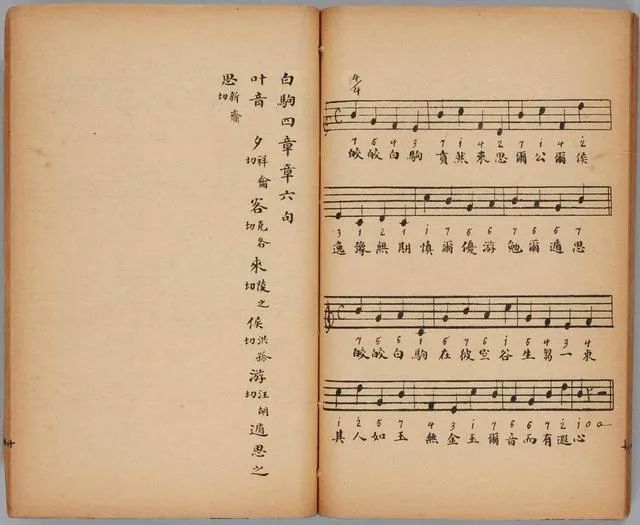 4/4
7 5 4 3 7 i 4 2 7 i 4 2
皎皎白駒賁然來思爾公爾侯
3 1 2 1 i 7 5 6 7 6 5 7
逸豫無期慎爾優游勉爾遁思
7 5 6 1 5 7 6 i 5 4 3 4
皎皎白駒在彼空谷生芻一束
i 2 5 7 4 3 i 5 6 5 6 7 2 i 0
其人如玉 無金玉爾音而有遐心
白駒四章章六句
叶音 夕祥龠切 客克各切 來陵之切 侯洪孤切 游汪胡切 遁思之
思新齎切